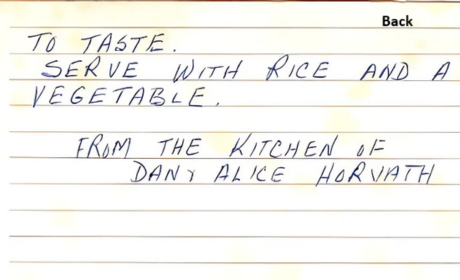 Back
TO TASTE.
SERVE WITH RICE AND A
VEGETABLE.
FROM THE KITCHEN OF
DAN & ALICE HORVATH